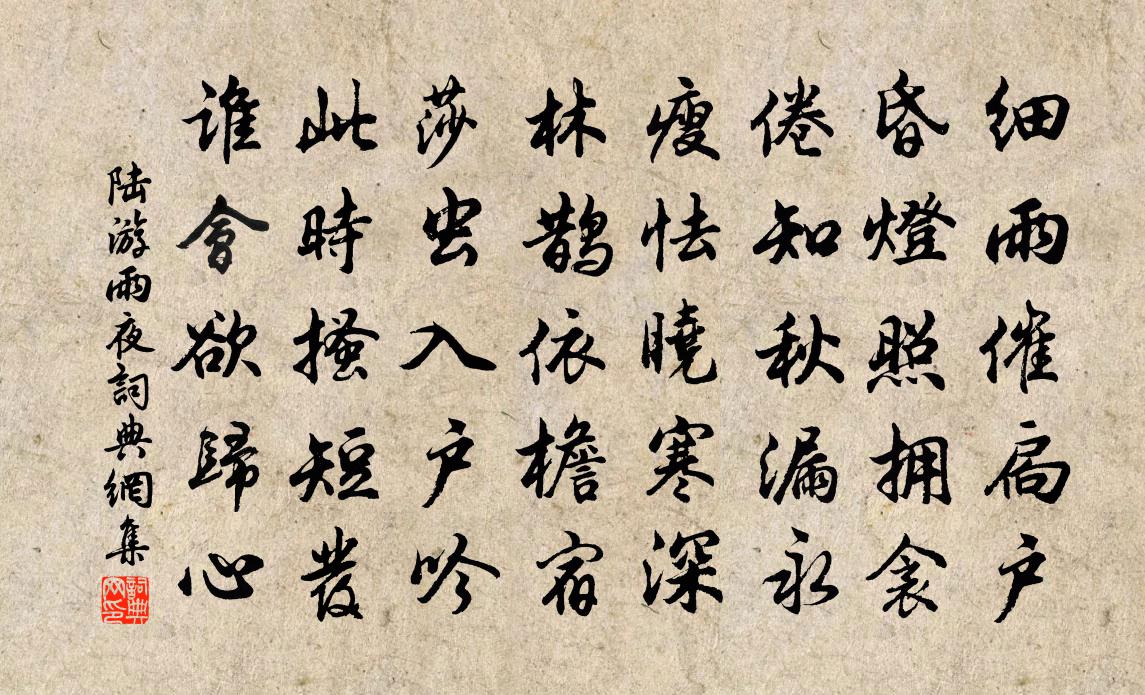 細雨催扃户
昏燈照拥衾
倦知秋漏永
瘦怯曉寒深
林鵲依檐宿
莎虫入户吟
此時搔短發
誰會欲歸心
陆游雨夜詞典網集
詞典网印